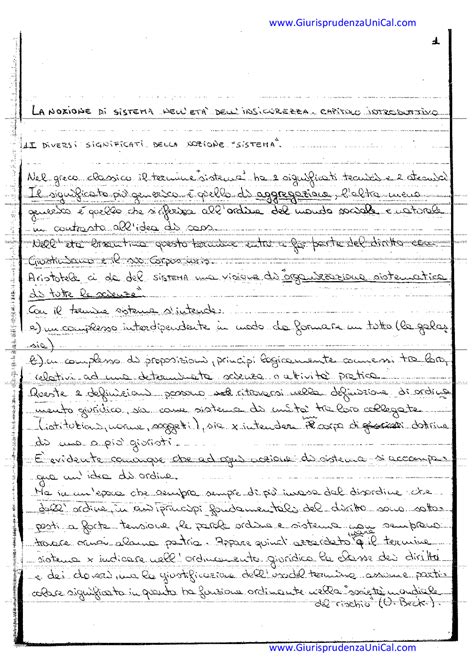 www.GiurisprudenzaUniCal.com
1
LA NOZIONE DI SISTEMA NELL'ETÀ DELL'INSICUREZZA. CAPITOLO INTRODUTTIVO
I DIVERSI SIGNIFICATI DELLA NOZIONE "SISTEMA".
Nel greco classico il termine "sistema" ha 2 significati tecnici e 2 atecnici
Il significato più generico è quello di aggregazione, l'altro meno
generico è quello che si riferisce all'ordine del mondo sociale e naturale
in contrasto all'idea di caos.
Nell'età bizantina questo termine entra a far parte del diritto con
Giustiniano e il suo Corpus iuris.
Aristotele ci dà del SISTEMA una visione di "organizzazione sistematica
di tutte le scienze"
Con il termine sistema s'intende:
a) un complesso interdipendente in modo da formare un tutto (la galas
sia)
b) un complesso di proposizioni, principi logicamente connessi tra loro,
relativi ad una determinata scienza o attività pratica.
Queste 2 definizioni possono ritrovarsi nella definizione di ordina
mento giuridico, sia come sistema di unità tra loro collegate
(istituzioni, norme, soggetti), sia x intendere il corpo di dottrine
di uno o più giuristi.
È evidente comunque che ad ogni nozione di sistema si accompa
gna un'idea di ordine.
Ma in un'epoca che sembra sempre di più invasa dal disordine che
dall'ordine, in cui i principi fondamentali del diritto sono sotto
posti a forte tensione, le parole ordine e sistema non sembrano
trovare ormai alcuna patria. Appare quindi azzardato il termine
sistema x indicare nell'ordinamento giuridico la classe dei diritti
e dei doveri, ma la giustificazione dell'uso del termine assume parti
colare significato in quanto ha funzione ordinante nella "società mondiale
del rischio" (U. Beck).
www.GiurisprudenzaUniCal.com